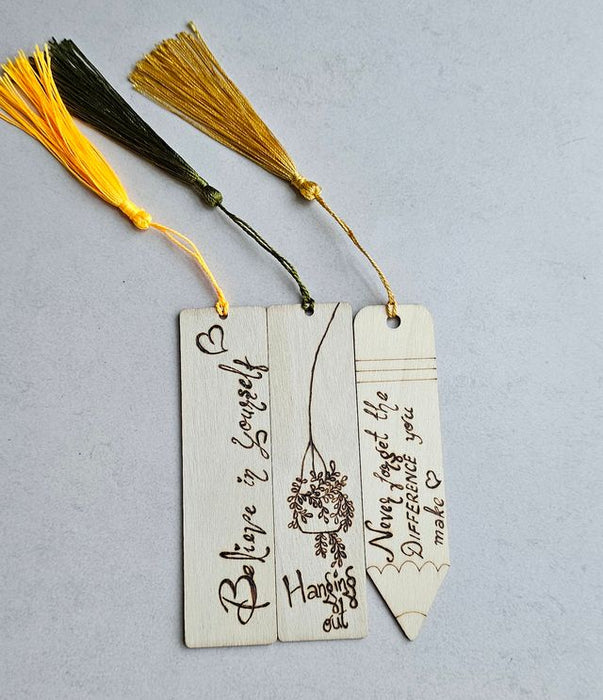 Believe in Yourself
Hanging
out
Never forget the
DIFFERENCE you
make